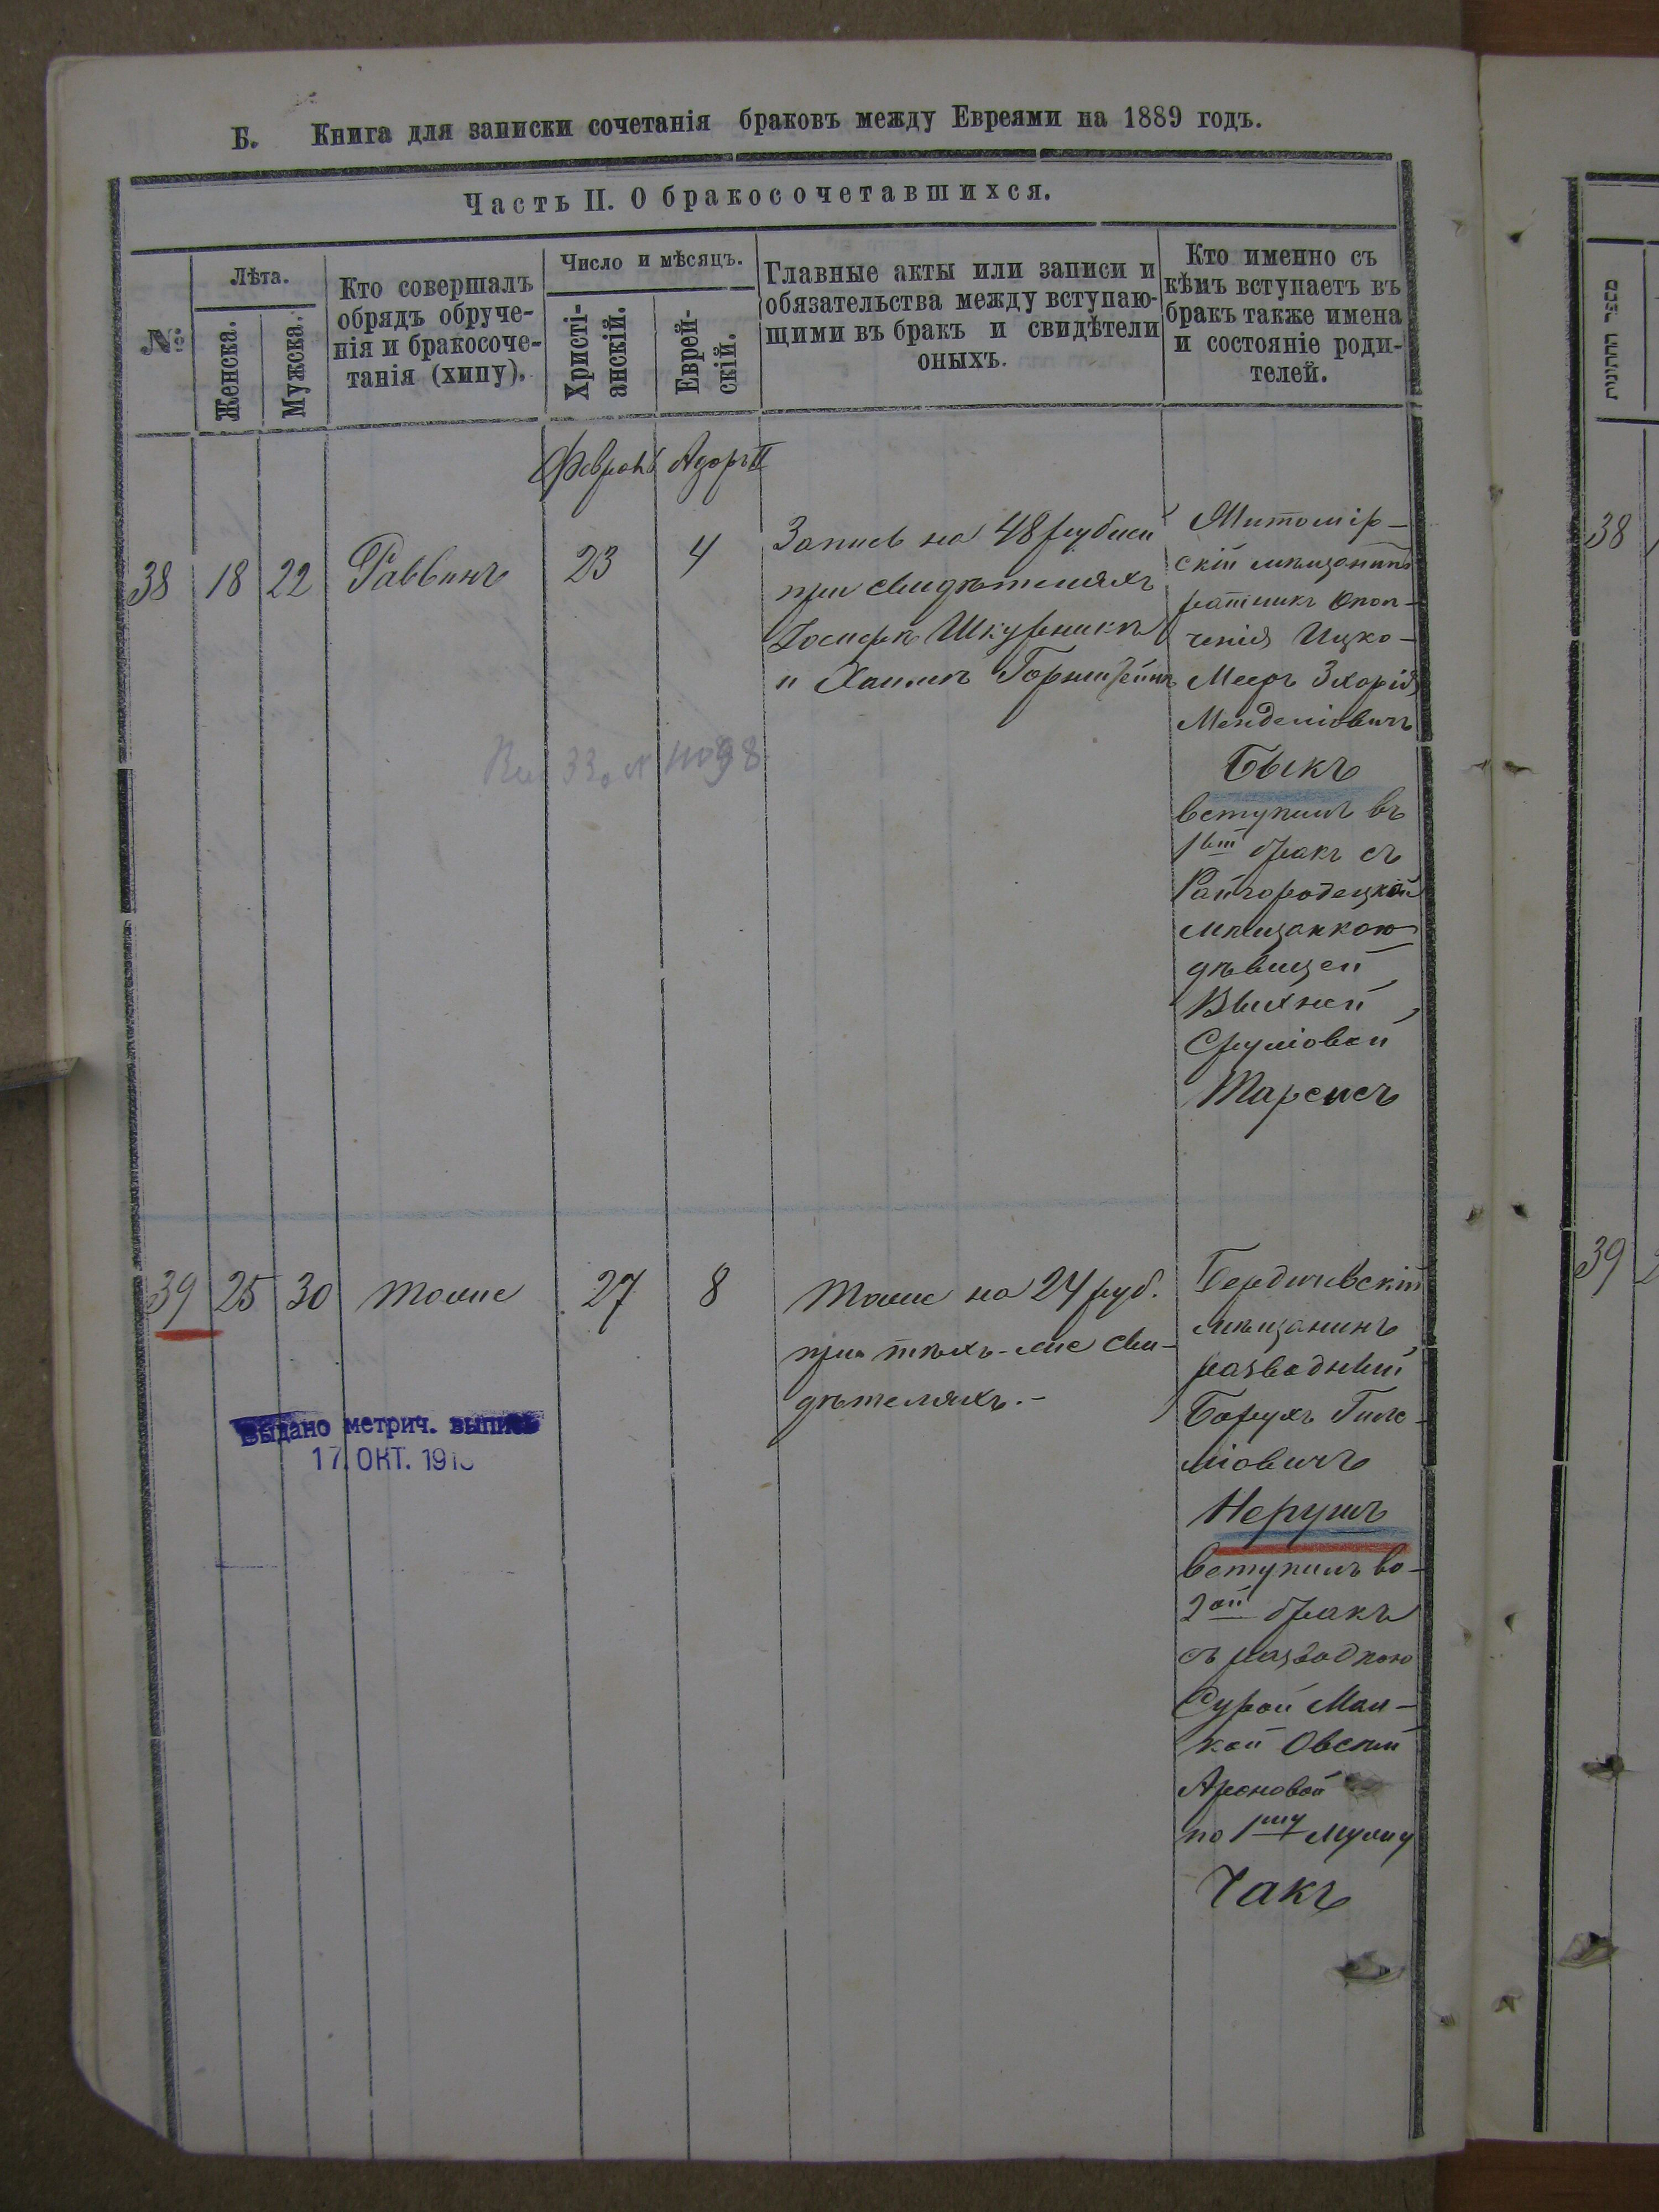 Б. Книга для записки сочетанія браковъ между Евреями на 1889 годъ.
Часть II. О бракосочетавшихся.
№
Лѣта.
Женска.
Мужска.
Кто совершалъ
обрядъ обруче-
нія и бракосоче-
танія (хипу).
Число и мѣсяцъ.
Христі-
анскій.
Еврей-
скій.
Главные акты или записи и
обязательства между вступаю-
щими въ бракъ и свидѣтели
оныхъ.
Кто именно съ
кѣмъ вступаетъ въ
бракъ также имена
и состояніе роди-
телей.
מספר החתונות
Адоръ II
38 18 22 Раввинъ 23 4
Запись на 48 рублей
при свидѣтеляхъ
Іосифѣ Шкурникѣ
и Хаимѣ
Житомір-
скій мѣщанинъ
ратникъ опол-
ченія Ицко-
Меер Зхарія
Менделіовичъ
Быкъ
вступилъ въ
1ый бракъ съ
Райгородецкой
мѣщанкою
дѣвицей
Сруліовой
38
39 25 30 тоже 27 8
Тоже на 24 руб.
при тѣхъ-же сви-
дѣтеляхъ.-
Бердичевскій
мѣщанинъ
разводный
Борухъ
Нерушъ
вступилъ во-
2ой бракъ
съ разводною
Сурой Мал-
кой
Ароновой
по 1му мужу
Чакъ
Выдано метрич. выпись
17. ОКТ. 191
39